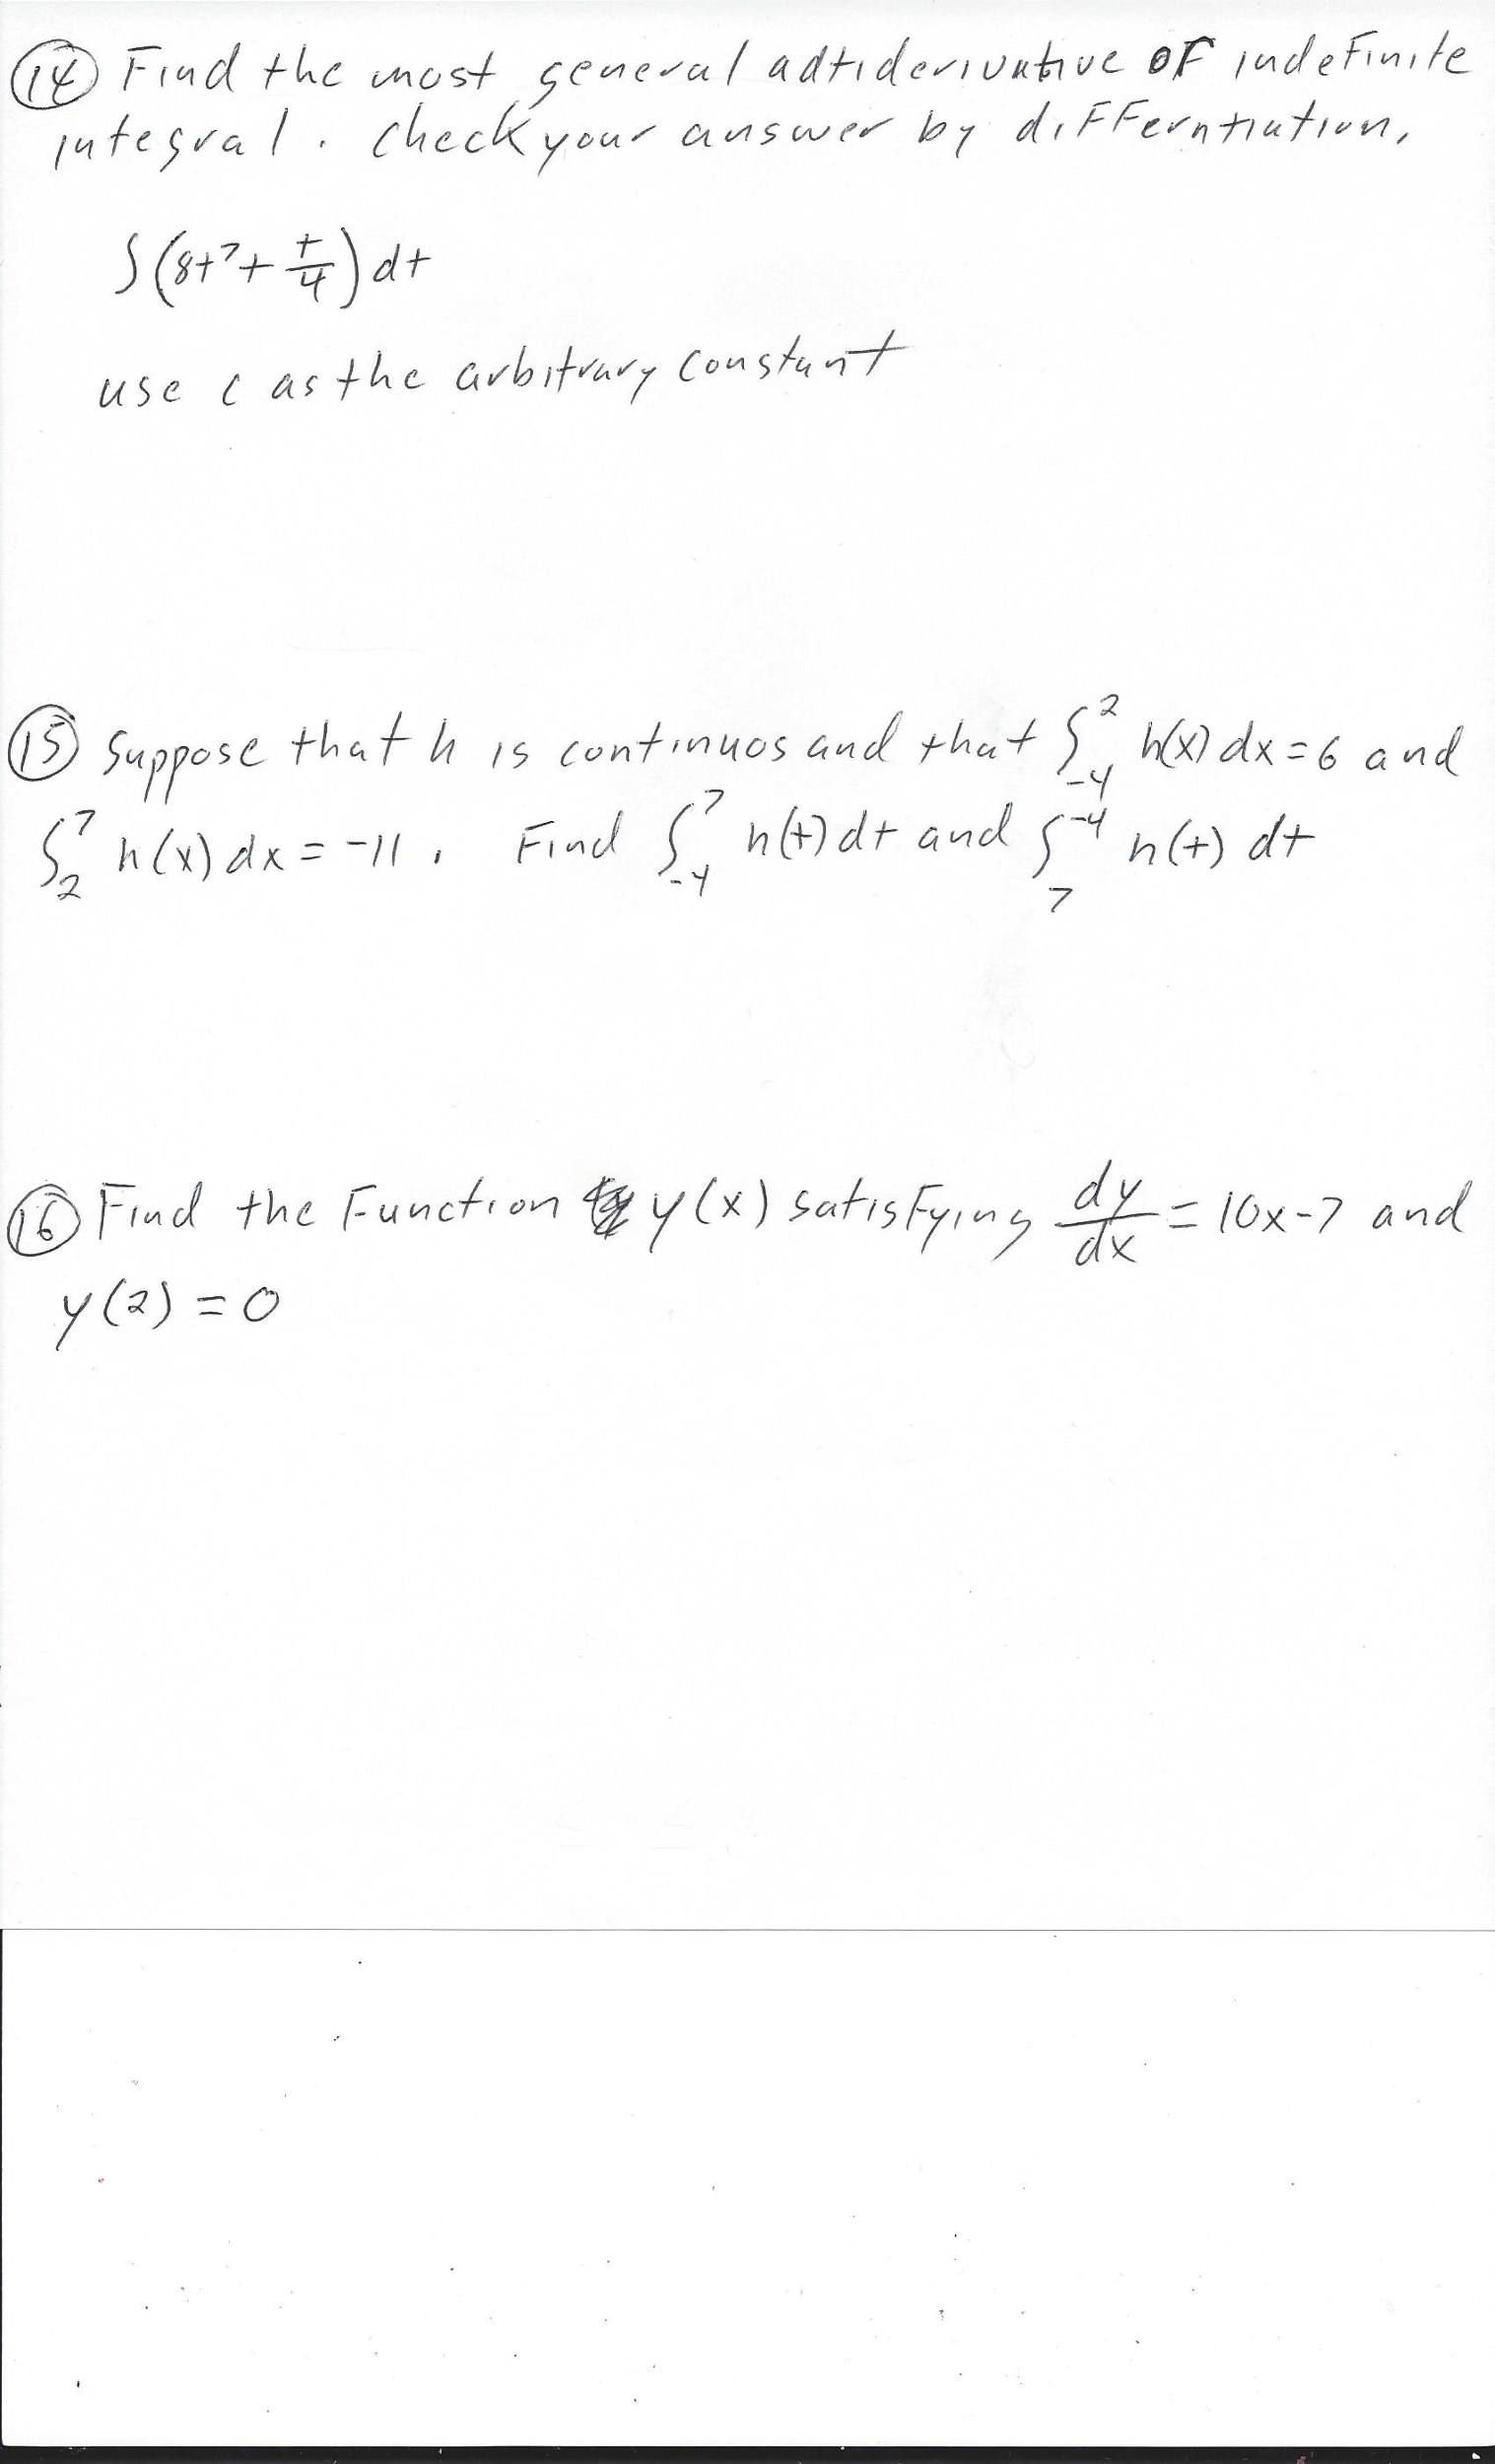 (14) Find the most general adtiderivative of indefinite
integral. Check your answer by differntiation,
∫(8t⁷ + t/4) dt
use c as the arbitrary constant
(15) Suppose that h is continuos and that ∫₋₄² h(x) dx = 6 and
∫₂⁷ h(x) dx = -11. Find ∫₋₄⁷ h(t) dt and ∫₇⁻⁴ h(t) dt
(16) Find the Function y(x) satisfying dy/dx = 10x-7 and
y(2) = 0